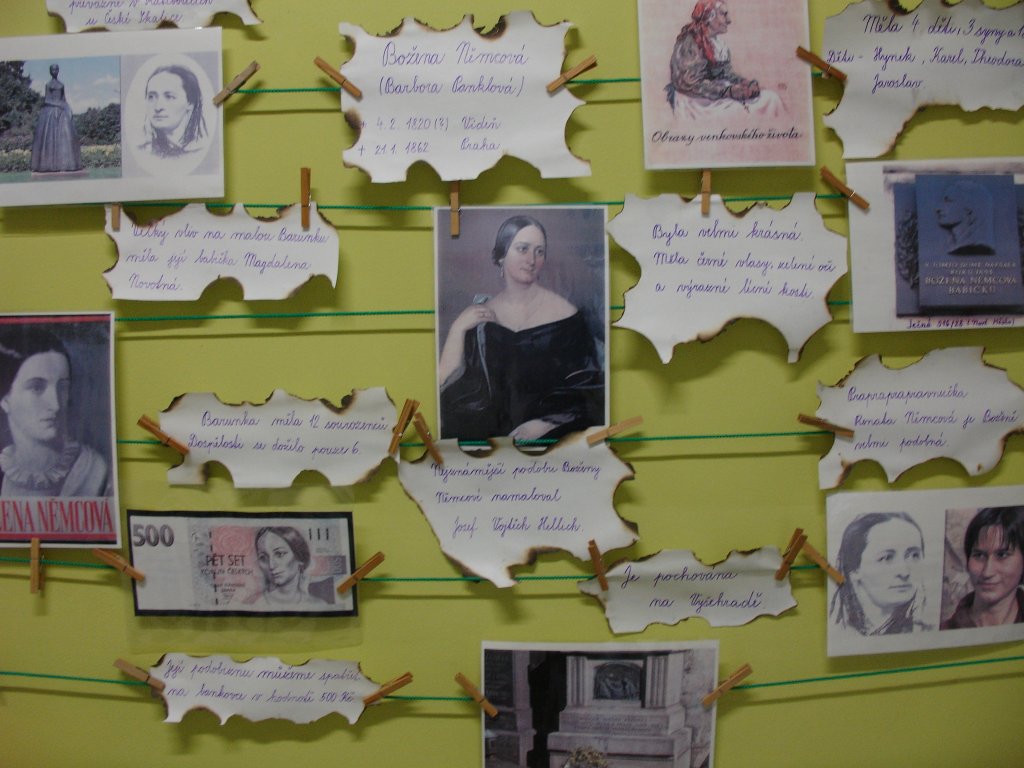 převážně v Ratibořicích
u České Skalice
Božena Němcová
(Barbora Panklová)
* 4. 2. 1820 (?) Vídeň
+ 21. 1. 1862 Praha
Obrazy venkovského života
Měla 4 děti, 3 syny a 1
Děti - Hynek, Karel, Theodora
Jaroslav
Velký vliv na malou Barunku
měla její babička Magdalena
Novotná.
Byla velmi krásná.
Měla černé vlasy, zelené oči
a výrazné lícní kosti.
BOŽENA NĚMCOVÁ
BABIČKU
Ječná 516/28 (Nové Město)
Barunka měla 12 sourozenců
Dospělosti se dožilo pouze 6.
Prapraprapravnučka
Renata Němcová je Boženě
velmi podobná.
Nejznámější podobu Boženy
Němcové namaloval
Josef Vojtěch Hellich.
ENA NĚMCOVÁ
500
PĚT SET
KORUN ČESKÝCH
Je pochována
na Vyšehradě
Její podobiznu můžeme spatřit
na bankovce v hodnotě 500 Kč.